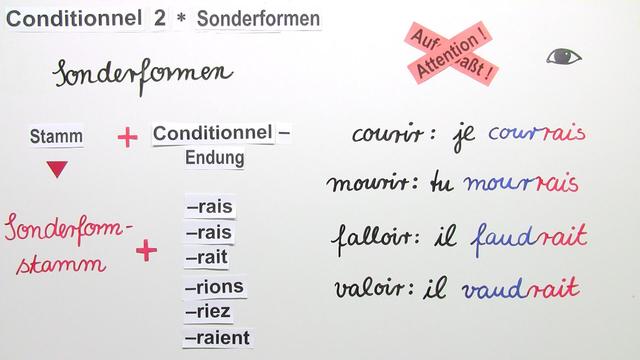 Conditionnel 2 * Sonderformen
Sonderformen
Attention !
Stamm + Conditionnel –
Endung
Sonderform-
stamm +
–rais
–rais
–rait
–rions
–riez
–raient
courir: je courrais
mourir: tu mourrais
falloir: il faudrait
valoir: il vaudrait